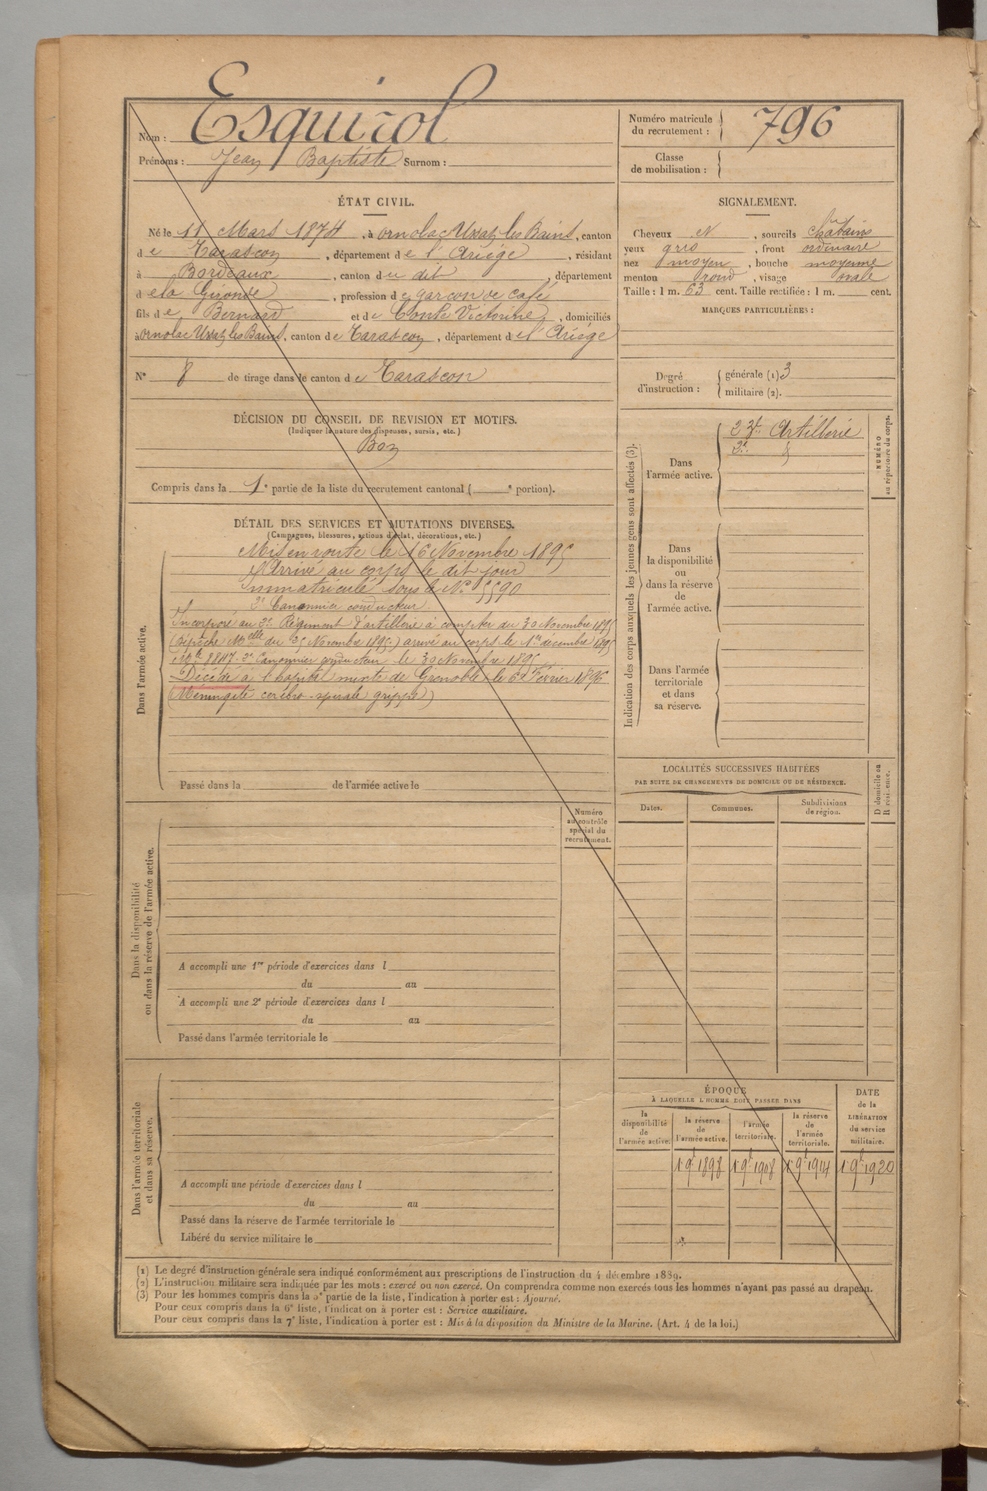 Nom : Esquirol
Prénoms : Jean Baptiste Surnom :
Numéro matricule
du recrutement : 796
Classe
de mobilisation :
ÉTAT CIVIL.
Né le 11 Mars 1874, à Ornolac Ussat les Bains, canton
de Tarascon, département de l'Ariège, résidant
à Bordeaux, canton du dit, département
de la Gironde, profession de garçon de café
fils de Bernard et de Conte Victorine, domiciliés
à Ornolac Ussat les Bains, canton de Tarascon, département de l'Ariège
N° 8 de tirage dans le canton de Tarascon
DÉCISION DU CONSEIL DE REVISION ET MOTIFS.
(Indiquer la nature des dispenses, sursis, etc.)
Bon
Compris dans la 1e partie de la liste du recrutement cantonal ( e portion).
DÉTAIL DES SERVICES ET MUTATIONS DIVERSES.
(Campagnes, blessures, actions d'éclat, décorations, etc.)
Dans l'armée active.
Mis en route le 16 Novembre 1895
Arrivé au corps le dit jour
immatriculé sous le N° 5590
2e Canonnier conducteur
Incorporé au 2e Régiment d'artillerie à compter du 30 Novembre 1895
(dépêche Melle du 25 Novembre 1895) arrivé au corps le 1er décembre 1895
2e Canonnier conducteur le 30 Novembre 1895
Décédé à l'hopital mixte de Grenoble le 6 Février 1896
(Méningite cérébro-spinale grippe)
Passé dans la de l'armée active le
Dans la disponibilité
ou dans la réserve de l'armée active.
Numéro
au contrôle
spécial du
recrutement.
A accompli une 1re période d'exercices dans l
du au
A accompli une 2e période d'exercices dans l
du au
Passé dans l'armée territoriale le
Dans l'armée territoriale
et dans sa réserve.
A accompli une période d'exercices dans l
du au
Passé dans la réserve de l'armée territoriale le
Libéré du service militaire le
SIGNALEMENT.
Cheveux et, sourcils châtains
yeux gris, front ordinaire
nez moyen, bouche moyenne
menton rond, visage ovale
Taille : 1 m. 63 cent. Taille rectifiée : 1 m. cent.
MARQUES PARTICULIÈRES :
Degré
d'instruction :
générale (1) 3
militaire (2).
Indication des corps auxquels les jeunes gens sont affectés (3).
Dans
l'armée active.
23e Artillerie
2e
NUMÉRO
au répertoire du corps.
Dans
la disponibilité
ou
dans la réserve
de
l'armée active.
Dans l'armée
territoriale
et dans
sa réserve.
LOCALITÉS SUCCESSIVES HABITÉES
PAR SUITE DE CHANGEMENTS DE DOMICILE OU DE RÉSIDENCE.
Dates.
Communes.
Subdivisions
de région.
D domicile ou
R résidence.
ÉPOQUE
À LAQUELLE L'HOMME DOIT PASSER DANS
la
disponibilité
de
l'armée active.
la réserve
de
l'armée active.
l'armée
territoriale.
la réserve
de
l'armée
territoriale.
DATE
de la
LIBÉRATION
du service
militaire.
1 9e 1898 1 9e 1908 1 9e 1914 1 9e 1920
(1) Le degré d'instruction générale sera indiqué conformément aux prescriptions de l'instruction du 4 décembre 1889.
(2) L'instruction militaire sera indiquée par les mots : exercé ou non exercé. On comprendra comme non exercés tous les hommes n'ayant pas passé au drapeau.
(3) Pour les hommes compris dans la 5e partie de la liste, l'indication à porter est : Ajourné.
Pour ceux compris dans la 6e liste, l'indication à porter est : Service auxiliaire.
Pour ceux compris dans la 7e liste, l'indication à porter est : Mis à la disposition du Ministre de la Marine. (Art. 4 de la loi.)